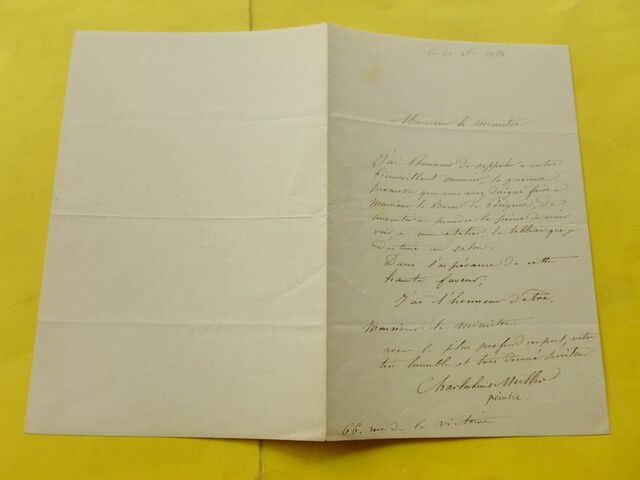 Monsieur le ministre
J'ai l'honneur de rappeler à votre
bienveillant souvenir, la précieuse
promesse que vous avez daigné faire à
Monsieur le Baron de, de
consentir à prendre la peine de venir
voir, à mon atelier, le tableau que je
destine au salon.
Dans l'espérance de cette
haute faveur,
J'ai l'honneur d'être,
Monsieur le ministre,
avec le plus profond respect, votre
très humble et très dévoué serviteur
Charles Louis Muller
peintre.
66. rue de la victoire